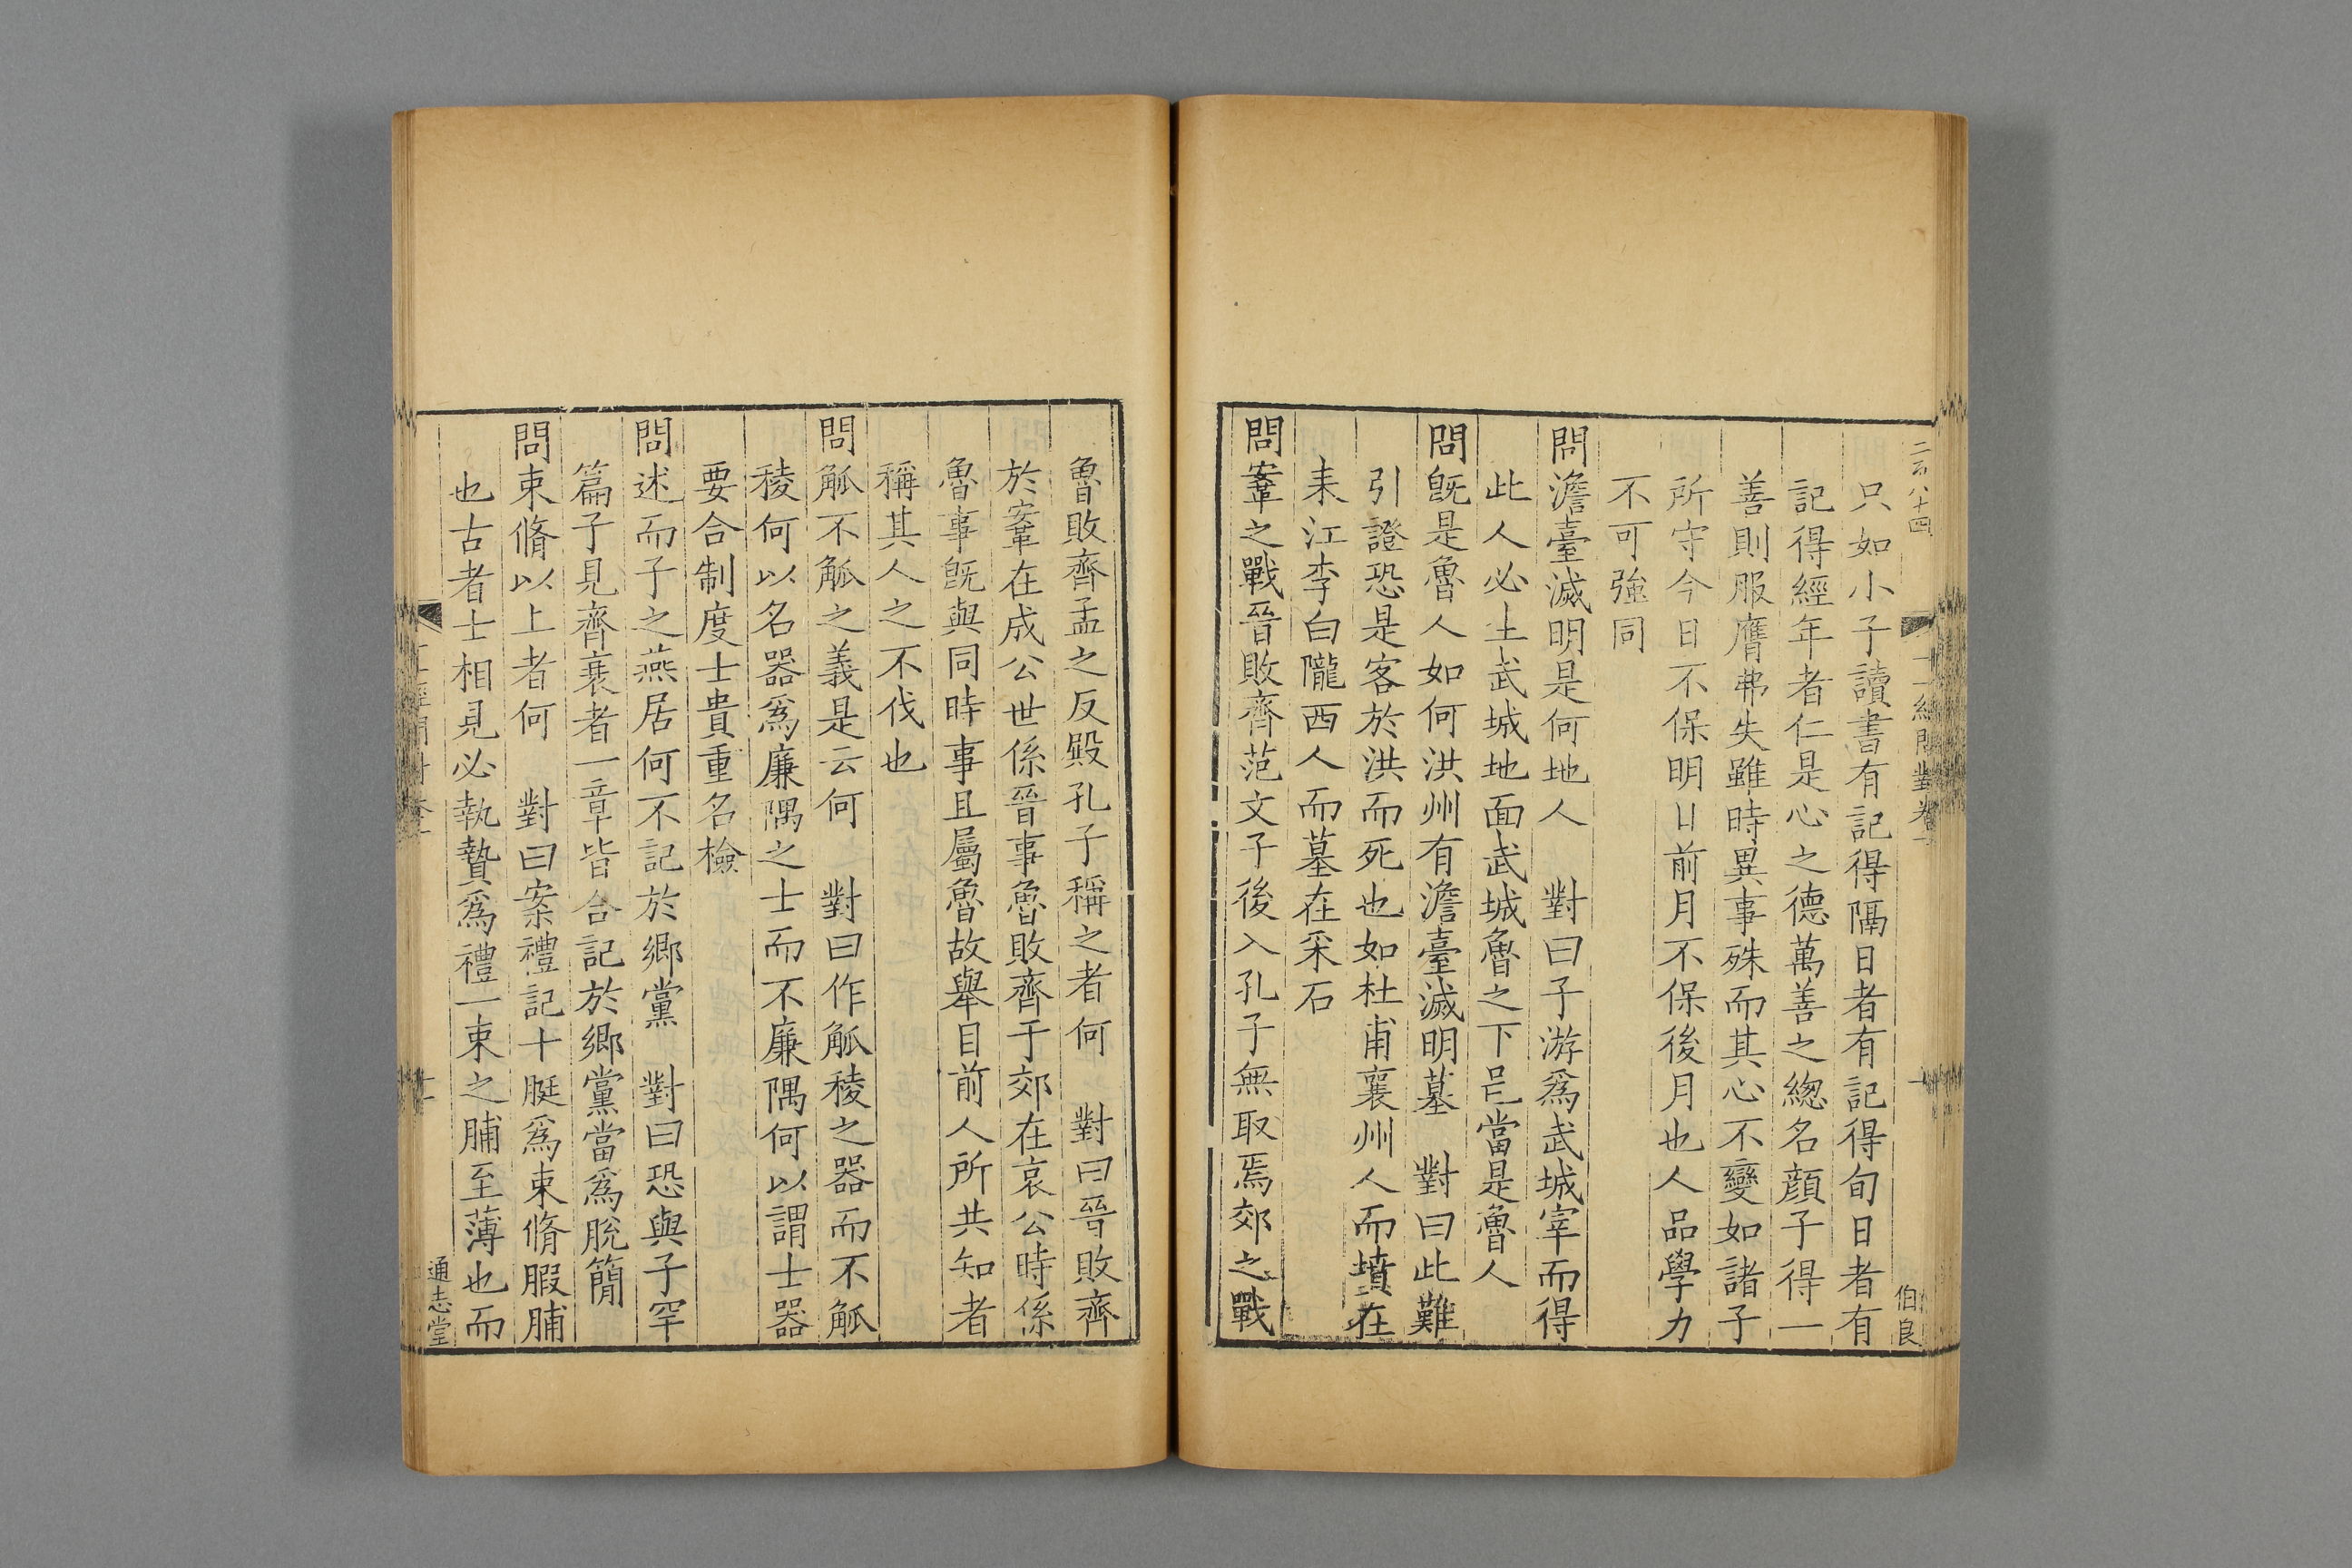 二百八十四
十一經問對卷一
十
伯良
只如小子讀書有記得隔日者有記得旬日者有
記得經年者仁是心之德萬善之緫名顔子得一
善則服膺弗失雖時異事殊而其心不變如諸子
所守今日不保明日前月不保後月也人品學力
不可強同
問澹臺滅明是何地人　對曰子游爲武城宰而得
此人必土武城地面武城魯之下邑當是魯人
問旣是魯人如何洪州有澹臺滅明墓　對曰此難
引證恐是客於洪而死也如杜甫襄州人而墳在
耒江李白隴西人而墓在采石
問鞌之戰晉敗齊范文子後入孔子無取焉郊之戰
魯敗齊孟之反殿孔子稱之者何　對曰晉敗齊
於鞌在成公世係晉事魯敗齊于郊在哀公時係
魯事旣與同時事且屬魯故舉目前人所共知者
稱其人之不伐也
問觚不觚之義是云何　對曰作觚稜之器而不觚
稜何以名器爲廉隅之士而不廉隅何以謂士器
要合制度士貴重名檢
問述而子之燕居何不記於鄉黨　對曰恐與子罕
篇子見齊衰者一章皆合記於鄉黨當爲脫簡
問束脩以上者何　對曰案禮記十脡爲束脩腶脯
也古者士相見必執贄爲禮一束之脯至薄也而
通志堂